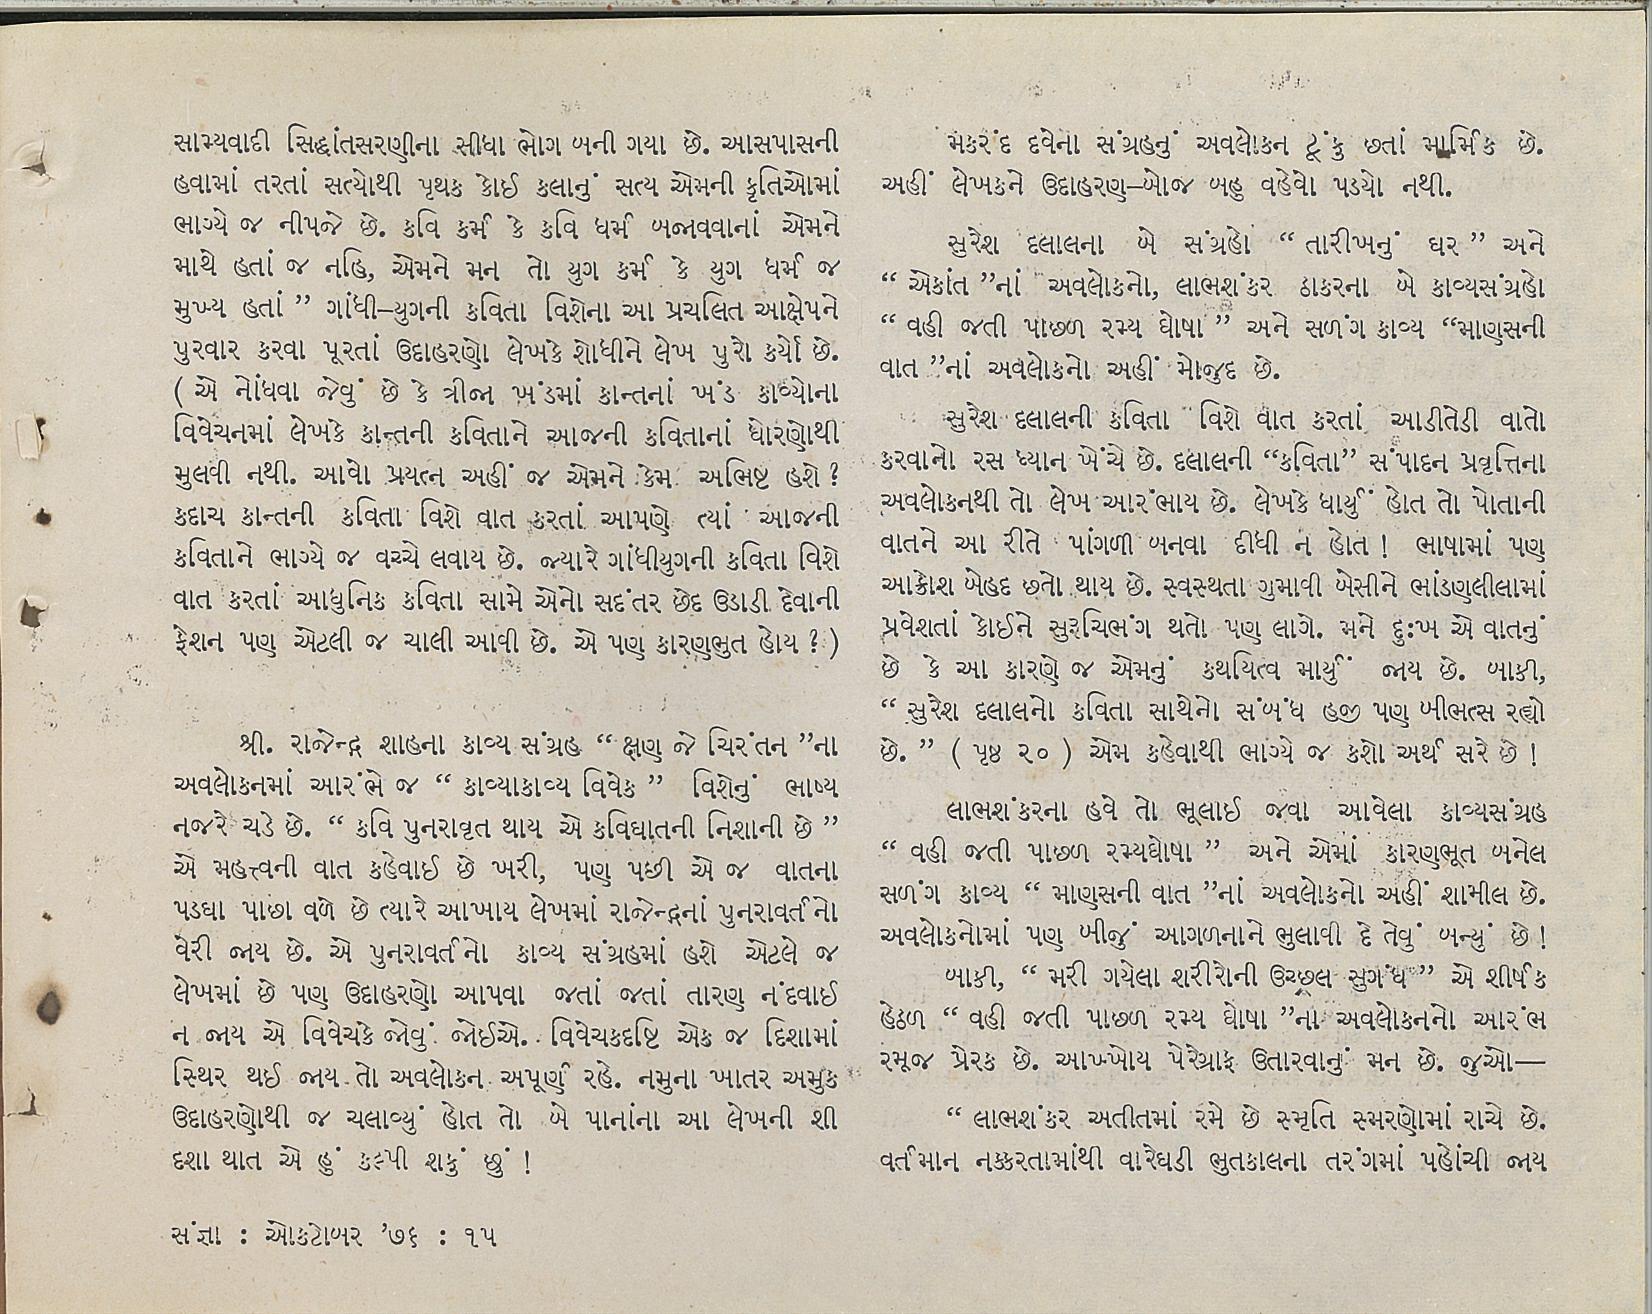 સામ્યવાદી સિદ્ધાંતસરણીના સીધા ભોગ બની ગયા છે. આસપાસની
હવામાં તરતાં સત્યોથી પૃથક કોઈ કલાનું સત્ય એમની કૃતિઓમાં
ભાગ્યે જ નીપજે છે. કવિ કર્મ કે કવિ ધર્મ બજાવવાનાં એમને
માથે હતાં જ નહિ, એમને મન તો યુગ કર્મ કે યુગ ધર્મ જ
મુખ્ય હતાં ” ગાંધી–યુગની કવિતા વિશેના આ પ્રચલિત આક્ષેપને
પુરવાર કરવા પૂરતાં ઉદાહરણો લેખકે શોધીને લેખ પુરો કર્યો છે.
( એ નોંધવા જેવું છે કે ત્રીજા ખંડમાં કાન્તનાં ખંડ કાવ્યોના
વિવેચનમાં લેખકે કાન્તની કવિતાને આજની કવિતાનાં ધોરણોથી
મુલવી નથી. આવો પ્રયત્ન અહીં જ એમને કેમ અભિષ્ટ હશે ?
કદાચ કાન્તની કવિતા વિશે વાત કરતાં આપણે ત્યાં આજની
કવિતાને ભાગ્યે જ વચ્ચે લવાય છે. જ્યારે ગાંધીયુગની કવિતા વિશે
વાત કરતાં આધુનિક કવિતા સામે એનો સદંતર છેદ ઉડાડી દેવાની
ફેશન પણ એટલી જ ચાલી આવી છે. એ પણ કારણભુત હોય ? )
શ્રી. રાજેન્દ્ર શાહના કાવ્ય સંગ્રહ “ ક્ષણ જે ચિરંતન ”ના
અવલોકનમાં આરંભે જ “ કાવ્યાકાવ્ય વિવેક ” વિશેનું ભાષ્ય
નજરે ચડે છે. “ કવિ પુનરાવૃત થાય એ કવિઘાતની નિશાની છે ”
એ મહત્ત્વની વાત કહેવાઈ છે ખરી, પણ પછી એ જ વાતના
પડઘા પાછા વળે છે ત્યારે આખાય લેખમાં રાજેન્દ્રનાં પુનરાવર્તનો
વેરી જાય છે. એ પુનરાવર્તનો કાવ્ય સંગ્રહમાં હશે એટલે જ
લેખમાં છે પણ ઉદાહરણો આપવા જતાં જતાં તારણ નંદવાઈ
ન જાય એ વિવેચકે જોવું જોઈએ. વિવેચકદૃષ્ટિ એક જ દિશામાં
સ્થિર થઈ જાય તો અવલોકન અપૂર્ણ રહે. નમુના ખાતર અમુક
ઉદાહરણોથી જ ચલાવ્યું હોત તો બે પાનાંના આ લેખની શી
દશા થાત એ હું કલ્પી શકું છું !
સંજ્ઞા : ઓક્ટોબર ’૭૬ : ૧૫
મકરંદ દવેના સંગ્રહનું અવલોકન ટૂંકુ છતાં માર્મિક છે.
અહીં લેખકને ઉદાહરણ–બોજ બહુ વહેવો પડયો નથી.
સુરેશ દલાલના બે સંગ્રહો “ તારીખનું ઘર ” અને
“ એકાંત ”નાં અવલોકનો, લાભશંકર ઠાકરના બે કાવ્યસંગ્રહો
“ વહી જતી પાછળ રમ્ય ઘોષા ” અને સળંગ કાવ્ય “માણસની
વાત ”નાં અવલોકનો અહીં મોજુદ છે.
સુરેશ દલાલની કવિતા વિશે વાત કરતાં આડીતેડી વાતો
કરવાનો રસ ધ્યાન ખેંચે છે. દલાલની “કવિતા” સંપાદન પ્રવૃત્તિના
અવલોકનથી તો લેખ આરંભાય છે. લેખકે ધાર્યું હોત તો પોતાની
વાતને આ રીતે પાંગળી બનવા દીધી ન હોત ! ભાષામાં પણ
આક્રોશ બેહદ છતો થાય છે. સ્વસ્થતા ગુમાવી બેસીને ભાંડણલીલામાં
પ્રવેશતાં કોઈને સુરૂચિભંગ થતો પણ લાગે. મને દુઃખ એ વાતનું
છે કે આ કારણે જ એમનું કથયિત્વ માર્યું જાય છે. બાકી,
“ સુરેશ દલાલનો કવિતા સાથેનો સંબંધ હજી પણ બીભત્સ રહ્યો
છે. ” ( પૃષ્ઠ ૨૦ ) એમ કહેવાથી ભાગ્યે જ કશો અર્થ સરે છે !
લાભશંકરના હવે તો ભૂલાઈ જવા આવેલા કાવ્યસંગ્રહ
“ વહી જતી પાછળ રમ્યઘોષા ” અને એમાં કારણભૂત બનેલ
સળંગ કાવ્ય “ માણસની વાત ”નાં અવલોકનો અહીં શામીલ છે.
અવલોકનોમાં પણ બીજું આગળનાને ભુલાવી દે તેવું બન્યું છે !
બાકી, “ મરી ગયેલા શરીરોની ઉચ્છ્લ સુગંધ ” એ શીર્ષક
હેઠળ “ વહી જતી પાછળ રમ્ય ઘોષા ”ના અવલોકનનો આરંભ
રમૂજ પ્રેરક છે. આખ્ખોય પેરેગ્રાફ ઉતારવાનું મન છે. જુઓ—
“ લાભશંકર અતીતમાં રમે છે સ્મૃતિ સ્મરણોમાં રાચે છે.
વર્તમાન નક્કરતામાંથી વારેઘડી ભુતકાલના તરંગમાં પહોંચી જાય